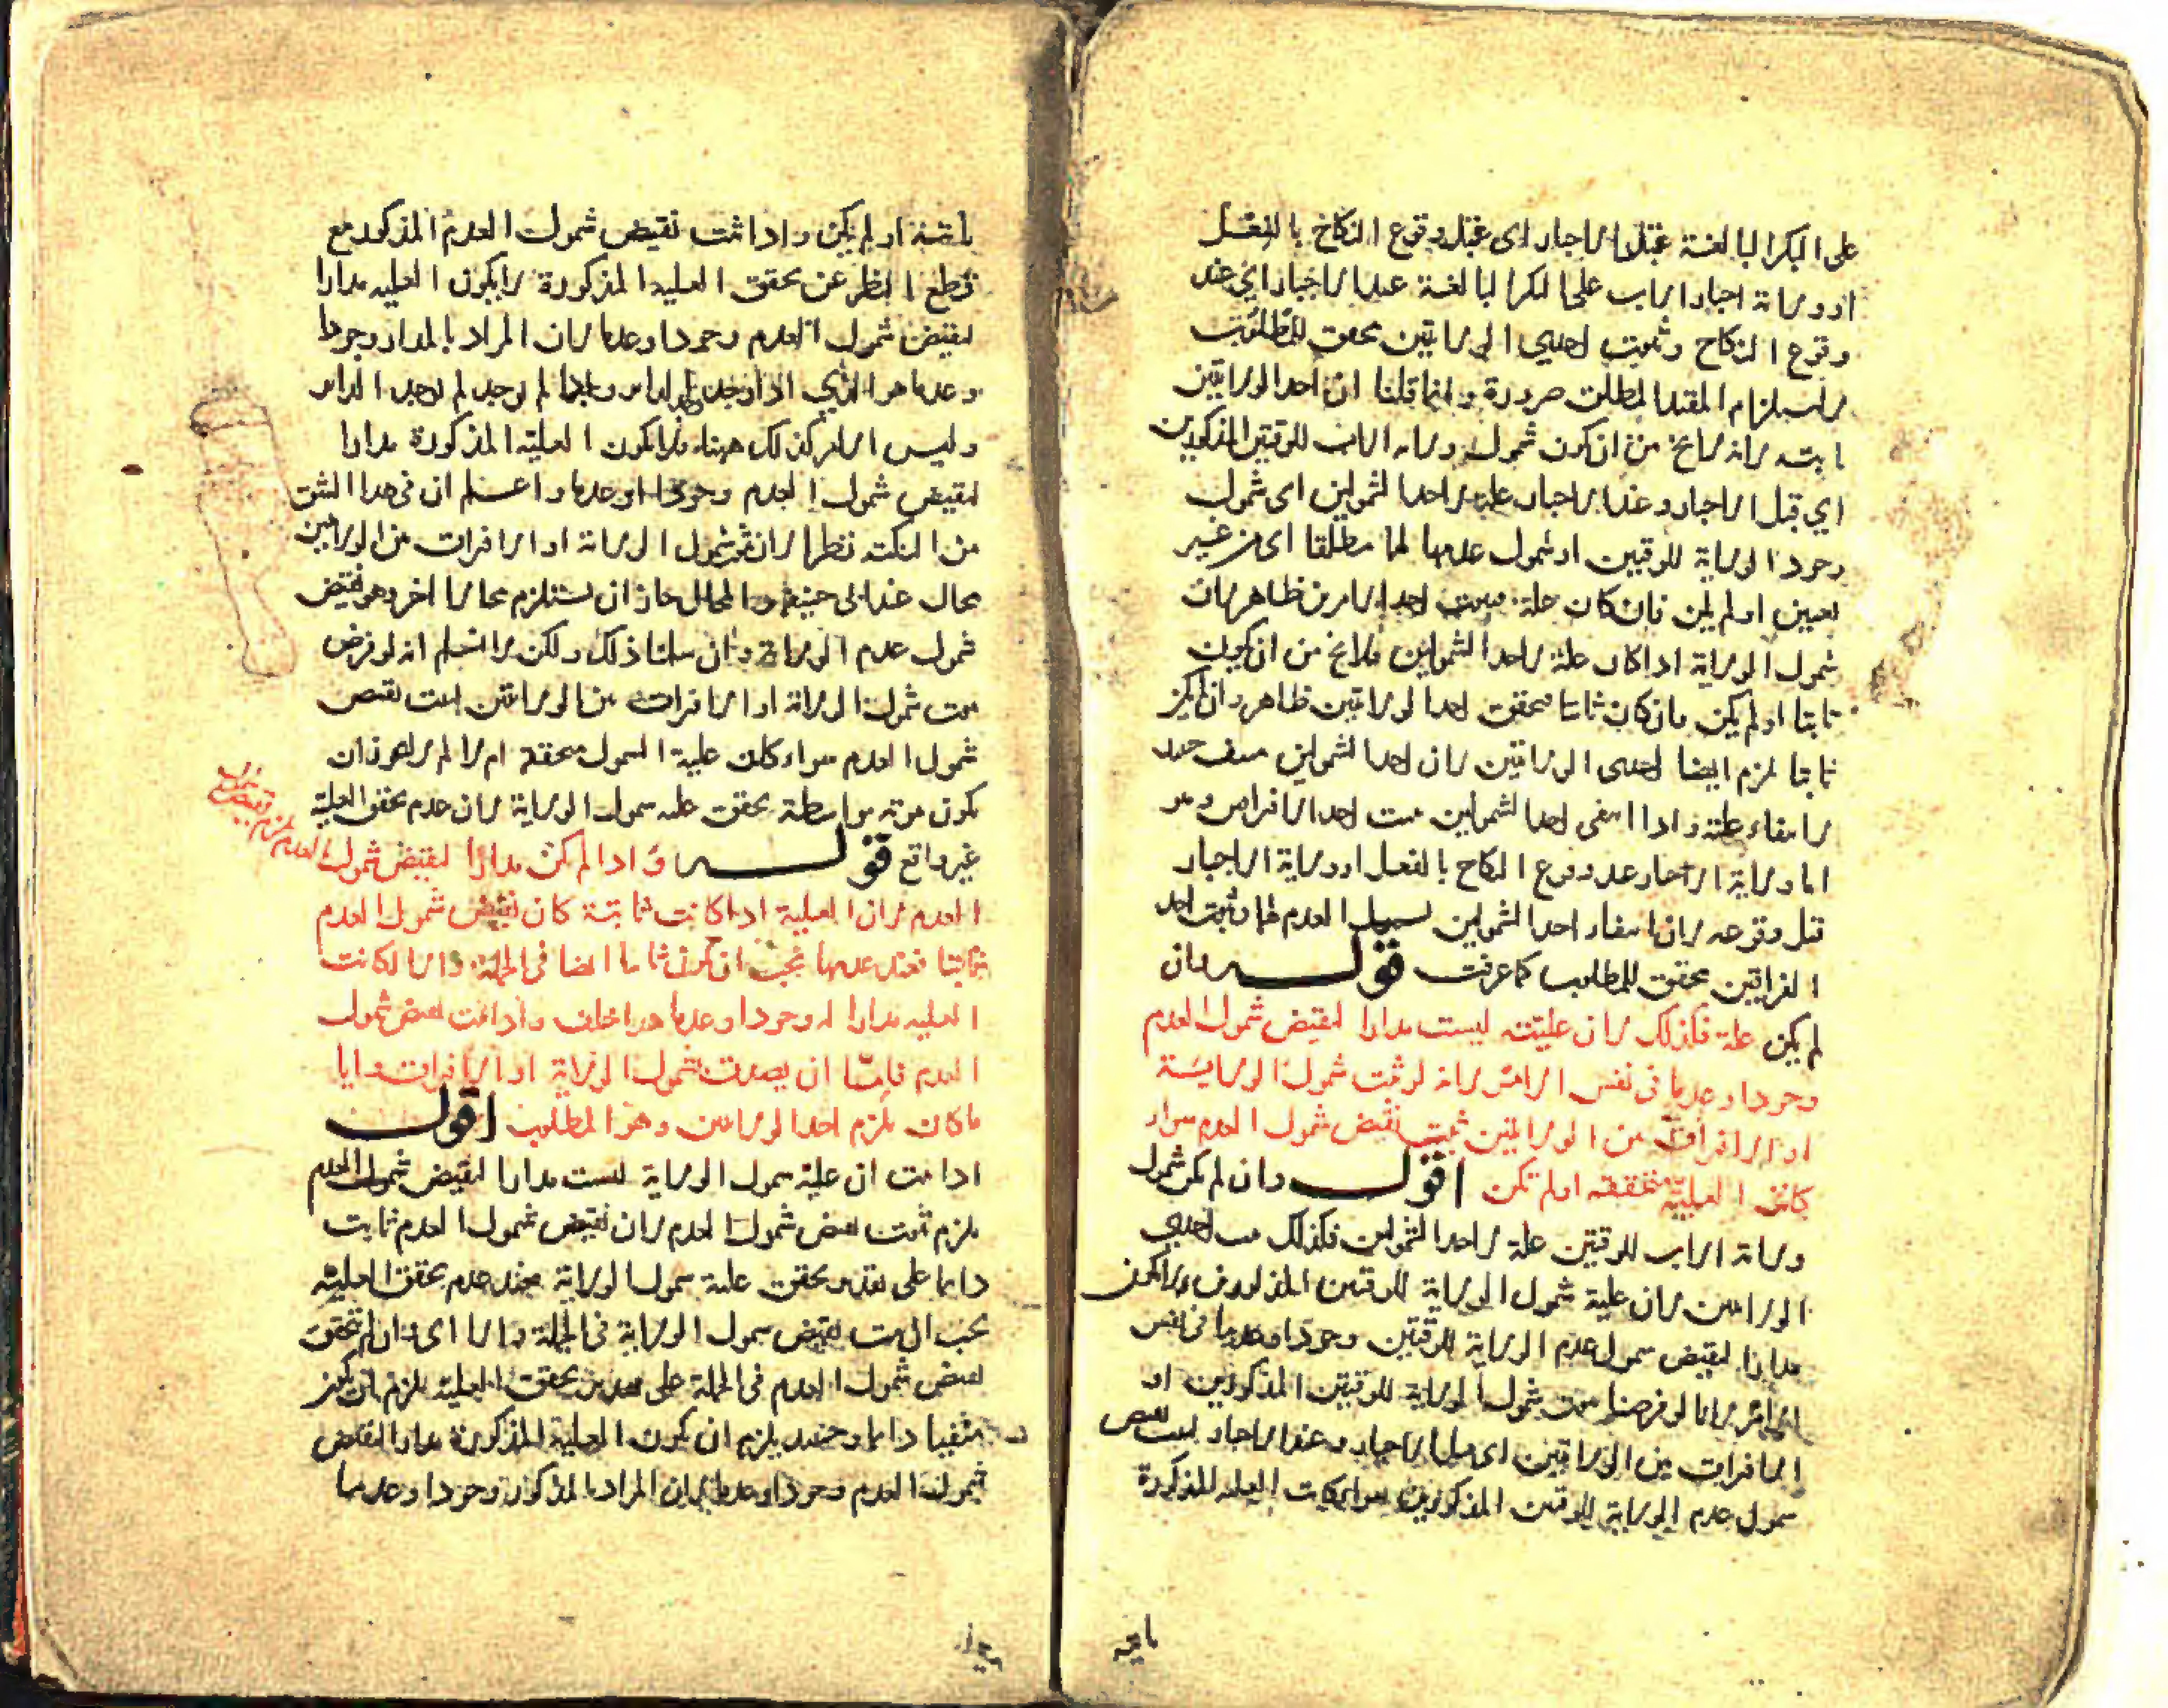 على البكر البالغة قبل الاجبار اى قبل وقوع النكاح بالفعل
او ولاية اجبار الاب على البكر البالغة عند الاجبار اي عند
وقوع النكاح وثبوت احدى الولايتين يحقق المطلوب
لاستلزام المقيد المطلق ضرورة وانما قلنا ان احد الولايتين
ثابتة لانه لا يخ من ان يكون شمول ولاية الاب للوقتين المذكورين
اي قبل الاجبار وعند الاجبار علة لاحد الشمولين اى شمول
وجود الولاية للوقتين او شمول عدمها لهما مطلقا اى من غير
تعيين او لم يكن فان كان علة احد الامرين ظاهر لان
شمول الولاية اذا كان علة لاحد الشمولين فلا يخ من ان يكون
ثابتا او لم يكن فان كان ثابتا فتحقق احد الولايتين ظاهر وان لم يكن
ثابتا لزم ايضا احدى الولايتين لان احد الشمولين
لانتفاء علته واذا انتفى احد الشمولين احد الافتراقين وهو
اما ولاية الاجبار عند وقوع النكاح بالفعل او ولاية الاجبار
قبل وقوعه لان انتفاء احد الشمولين العدم
الفراقين يحقق المطلوب كما عرفت قوله فان
لم يكن علة فكذلك لان عليته ليست مدارا لنقيض شمول العدم
وجودا وعدما فى نفس الامر لانه لو ثبت شمول الولاية
او الافتراق من الولايتين ثبت نقيض شمول العدم سواء
كانت العلية متحققه او لم تكن اقول وان لم يكن شمول
ولاية الاب للوقتين علة لاحد الشمولين فكذلك احدى
الولايتين لان علية شمول الولاية للوقتين المذكورين لا يكون
مدارا لنقيض شمول عدم الولاية للوقتين وجودا وعدما فى نفس
الامر لانا لو فرضنا شمول الولاية للوقتين المذكورين او
الافتراق من الولايتين اى قبل الاجبار وعند الاجبار نقيض
شمول عدم الولاية للوقتين المذكورين سواء كانت العلية المذكورة
باقية
او لم يكن واذا ثبت نقيض شمول العدم المذكور مع
قطع النظر عن تحقق العلية المذكورة لا يكون العلية مدارا
لنقيض شمول العدم وجودا وعدما لان المراد بالمدار وجودا
وعدما هو الذي اذا وجد لم يوجد لم يوجد الدائر
وليس الامر كذلك ههنا فلا يكون العلية المذكورة مدارا
لنقيض شمول العدم وجودا وعدما واعلم ان فى هذا الشق
من النكتة نظرا لان شمول الولاية او الافتراق من الولايتين
محال عند ابى حنيفة والمحال جاز ان يستلزم محالا اخر وهو نقيض
شمول عدم الولاية وان سلمنا ذلك ولكن لا نسلم انه لو فرض
شمول الولاية او الافتراق من الولايتين نقيض
شمول العدم سواء كان علية الشمول متحققة ام لا لم لا يجوز ان
يكون بواسطة تحقق علية شمول الولاية لان عدم تحقق العلية
غير واقع قوله واذا لم يكن مدارا لنقيض شمول
العدم لزم نقيض شمول
العدم لان العلية اذا كانت ثابتة كان نقيض شمول العدم
ثابتا فعند عدمها يجب ان يكون ثابتا ايضا فى الجملة والا لكانت
العلية مدارا له وجودا وعدما هذا خلف واذا ثبت نقيض شمول
العدم فاما ان يصدق شمول الولاية او الافتراق وايا
ما كان يلزم احد الولايتين وهو المطلوب اقول
اذا ثبت ان علية شمول الولاية ليست مدارا لنقيض شمول العدم
يلزم ثبوت نقيض شمول العدم لان نقيض شمول العدم ثابت
دائما على تقدير تحقق علية شمول الولاية فعند عدم تحقق العلية
يجب ان يثبت نقيض شمول الولاية فى الجملة والا اى ان لم يتحقق
نقيض شمول العدم فى الجملة على تقدير تحقق العلية يلزم ان يكون
منفيا دائما وحينئذ يلزم ان يكون العلية المذكورة مدارا لنقيض
شمول العدم وجودا وعدما لان المراد بالمذكور وجودا وعدما